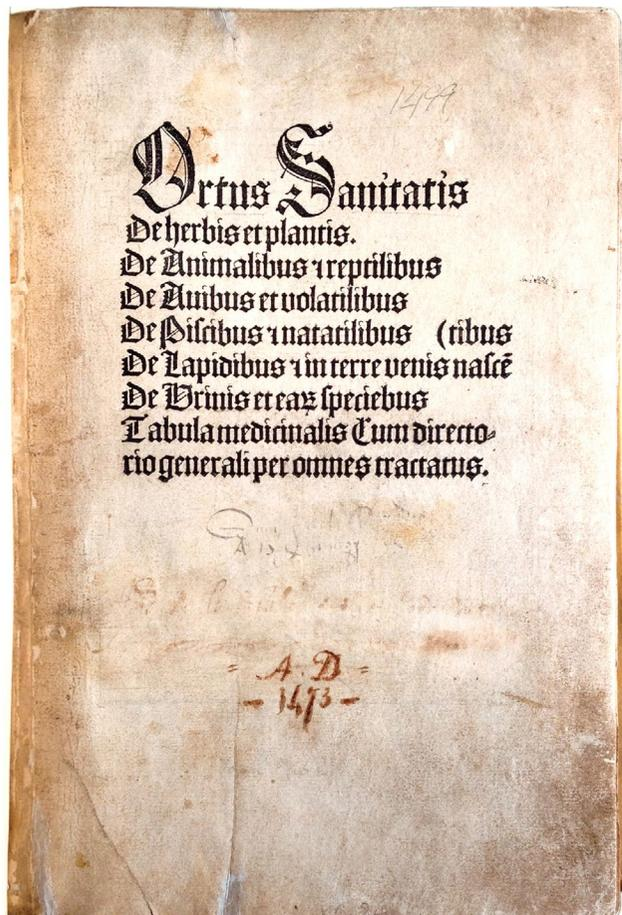 1499
Ortus Sanitatis
De herbis et plantis.
De Animalibus ⁊ reptilibus
De Auibus et volatilibus
De Piscibus ⁊ natatilibus (tibus
De Lapidibus ⁊ in terre venis nascē
De Vrinis et eaꝝ speciebus
Tabula medicinalis Cum directo⸗
rio generali per omnes tractatus.
= A. D =
- 1473 -